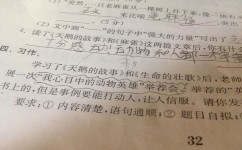 文中画“﹏﹏”的句子中“强大的力量”写出了
4. 读了《天鹅的故事》和《麻雀》这两篇文章后,你有什么
十分感动 动物和人都一样
四、习作。
学习了《天鹅的故事》和《生命的壮歌》后,老师
展一次“我心目中的动物英雄”举荐会
书上的,但是事例要能打动人,让人信服。请你发
要求:① 内容清楚,语句通顺;② 题目自拟,
32